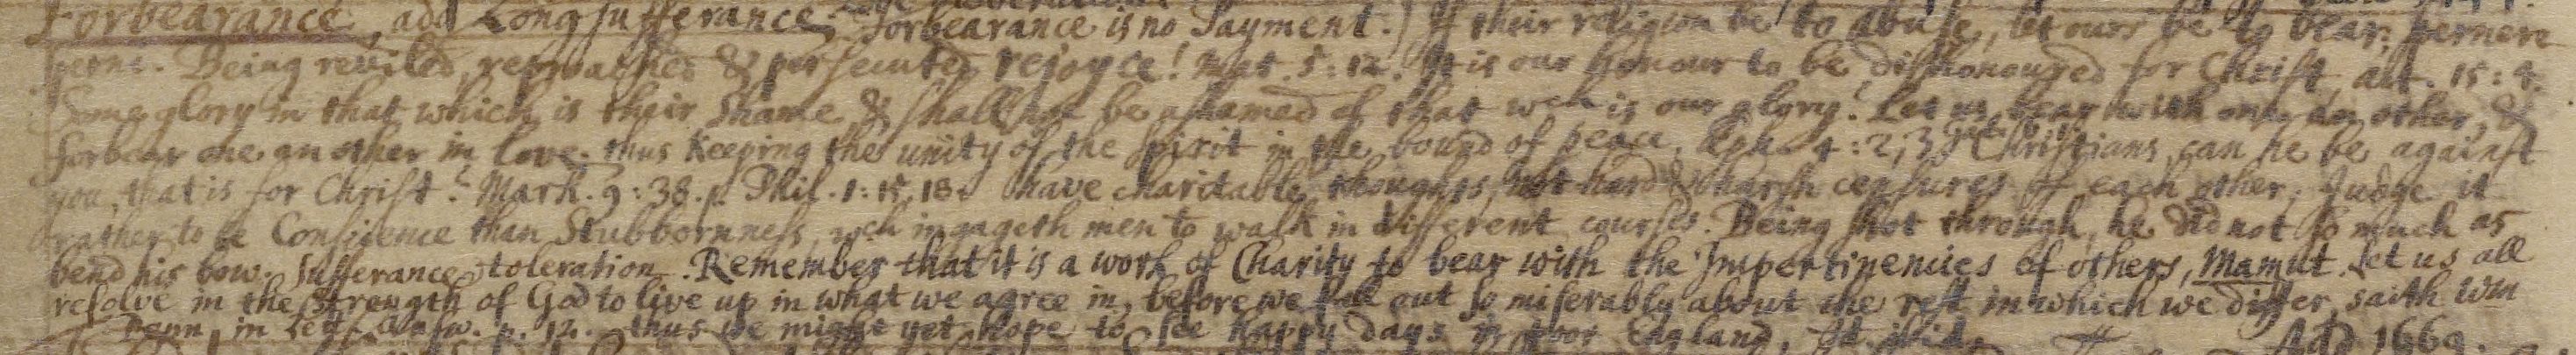 Forbearance, add Longsufferance, Forbearance is no Payment.) If their religion be to abuse, let ours be to bear,
Being reviled, reproached & persecuted rejoyce! Mat. 5:12. It is our honour to be dishonoured for Christ, act. 15:4.
Some glory in that which is their Shame & shall we be ashamed of that wch is our glory! Let us bear with one an other, &
forbear one an other in love. thus Keeping the unity of the Spirit in the bound of peace. Eph. 4:2,3 Christians, can he be against
you, that is for Christ? Mark. 9:38. Phil. 1:15,18. have charitable thoughts, not hard & harsh censures of each other; Judge it
rather to be Conscience than Stubbornness, wch ingageth men to walk in different courses. Being shot through, he did not so much as
bend his bow. Sufferance, toleration. Remember that it is a work of Charity to bear with the Impertinencies of others, Mamut. Let us all
resolve in the Strength of God to live up in what we agree in, before we fall out so miserably about the rest in which we differ, saith Wm
Penn, in p. 12. thus we might yet hope to see happy days in poor England, Id. ibid. Add 1669.